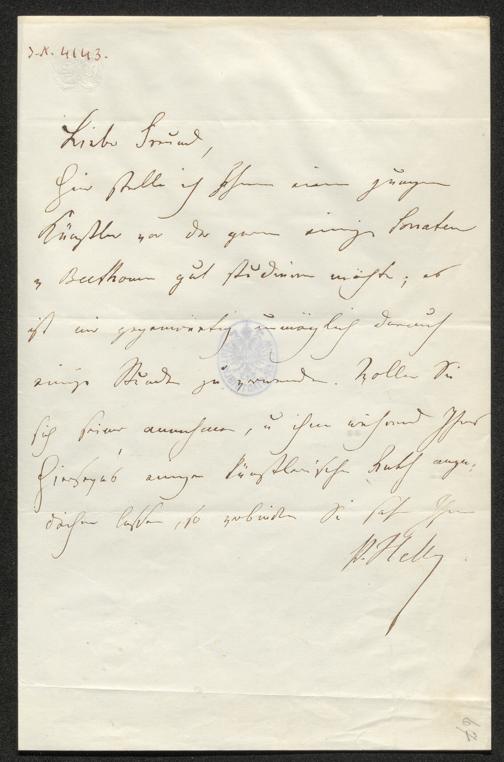 J.N. 4143.
Lieber Freund,
hier stelle ich Ihnen einen jungen
Künstler vor der gerne einige Sonaten
v Beethoven gut studieren möchte; es
ist mir gegenwärtig unmöglich darauf
einige Stunden zu verwenden. Wollen Sie
sich seiner annehmen, u ihm während Ihres
Hierseyns einigen künstlerischen Rath ange-
deihen lassen, so verbinden Sie sehr Ihren
St. Heller
62